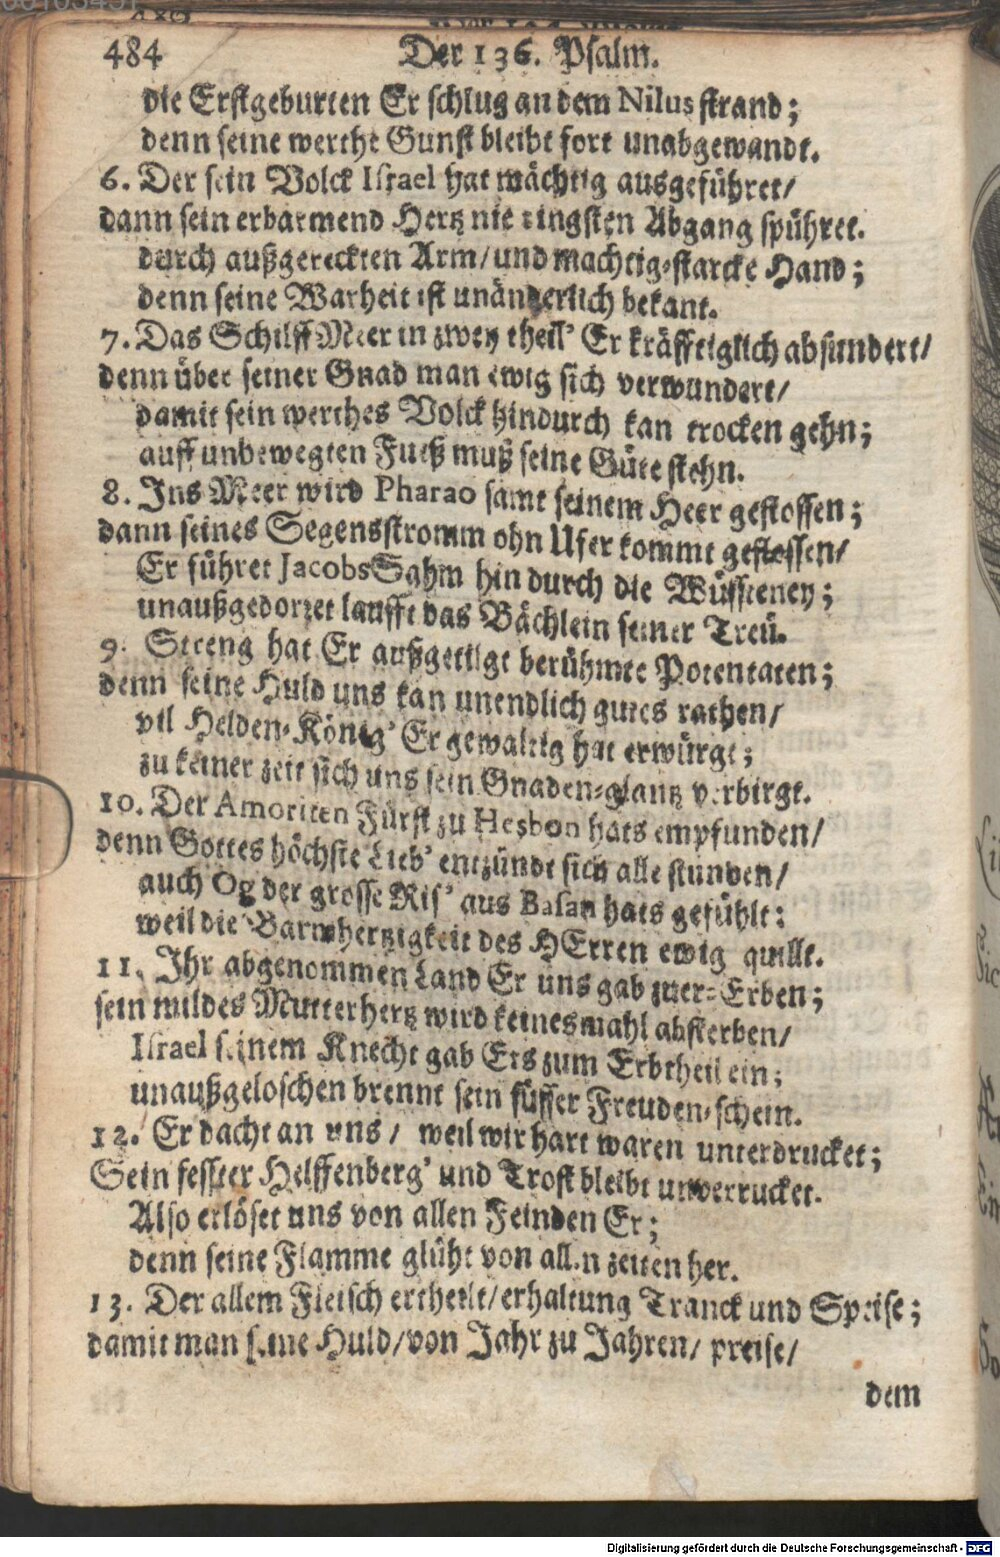 484 Der 136. Psalm.
die Erstgeburten Er schlug an dem Nilus strand;
denn seine werthe Gunst bleibt fort unabgewandt.
6. Der sein Volck Israel hat mächtig ausgeführet/
dann sein erbarmend Hertz nie ringsten Abgang spühret.
durch außgereckten Arm/ und machtig-starcke Hand;
denn seine Warheit ist unänderlich bekant.
7. Das Schilff Meer in zwey theil' Er kräfftiglich absundert/
denn über seiner Gnad man ewig sich verwundert/
damit sein werthes Volck hindurch kan trocken gehn;
auff unbewegten Fueß muß seine Güte stehn.
8. Ins Meer wird Pharao samt seinem Heer gestossen;
dann seines Segensstromm ohn Ufer kommt geflossen/
Er führet Jacobs Sahm hin durch die Wüsteney;
unaußgedorret laufft das Bächlein seiner Treü.
9. Streng hat Er außgetilgt berühmte Potentaten;
denn seine Huld uns kan unendlich gutes rathen/
vil Helden-König' Er gewaltig hat erwürgt;
zu keiner zeit sich uns sein Gnaden-glantz verbirgt.
10. Der Amoriten Fürst zu Hesbon hats empfunden/
denn Gottes höchste Lieb' entzündt sich alle stunden/
auch Og der grosse Ris' aus Basan hats gefühlt:
weil die Barmhertzigkeit des HErren ewig quillt.
11. Ihr abgenommen Land Er uns gab zuer-Erben;
sein mildes Mutterhertz wird keinesmahl absterben/
Israel seinem Knecht gab Ers zum Erbtheil ein;
unaußgeloschen brennt sein süsser Freuden-schein.
12. Er dacht an uns/ weil wir hart waren unterdrucket;
Sein fesster Helffenberg' und Trost bleibt unverrucket.
Also erlöset uns von allen Feinden Er;
denn seine Flamme glüht von allen zeiten her.
13. Der allem Fleisch ertheilt/ erhaltung Tranck und Speise;
damit man seine Huld/ von Jahr zu Jahren/ preise/
dem
Digitalisierung gefördert durch die Deutsche Forschungsgemeinschaft - DFG